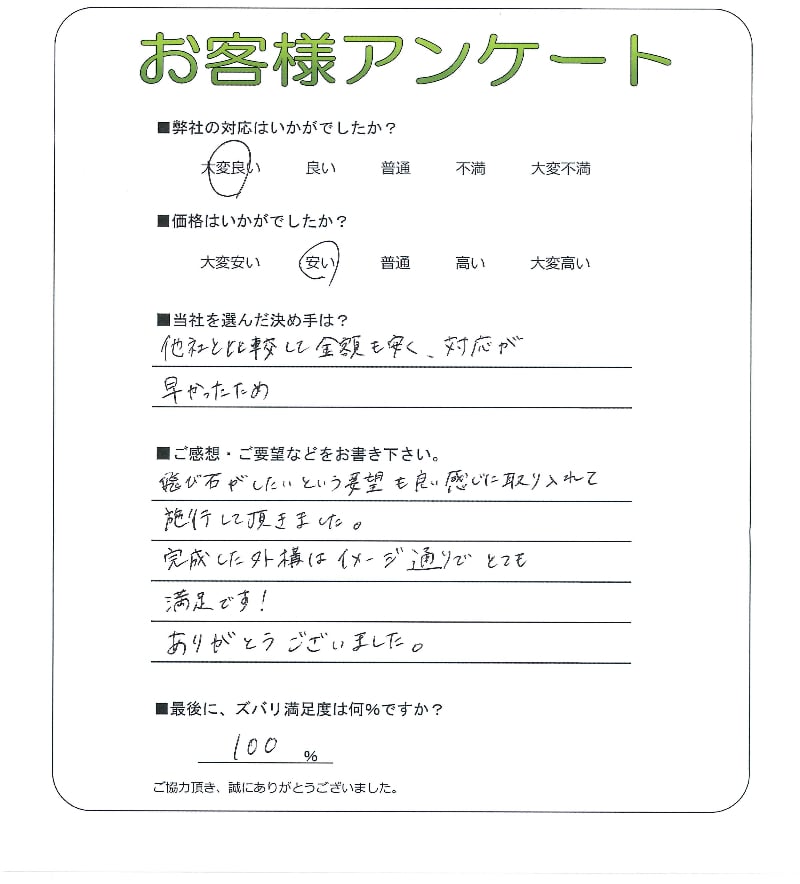 お客様アンケート
■弊社の対応はいかがでしたか？
大変良い 良い 普通 不満 大変不満
■価格はいかがでしたか？
大変安い 安い 普通 高い 大変高い
■当社を選んだ決め手は？
他社と比較して金額も安く、対応が
早かったため
■ご感想・ご要望などをお書き下さい。
飛び石がしたいという要望も良い感じに取り入れて
施行して頂きました。
完成した外構はイメージ通りでとても
満足です！
ありがとうございました。
■最後に、ズバリ満足度は何％ですか？
100 %
ご協力頂き、誠にありがとうございました。